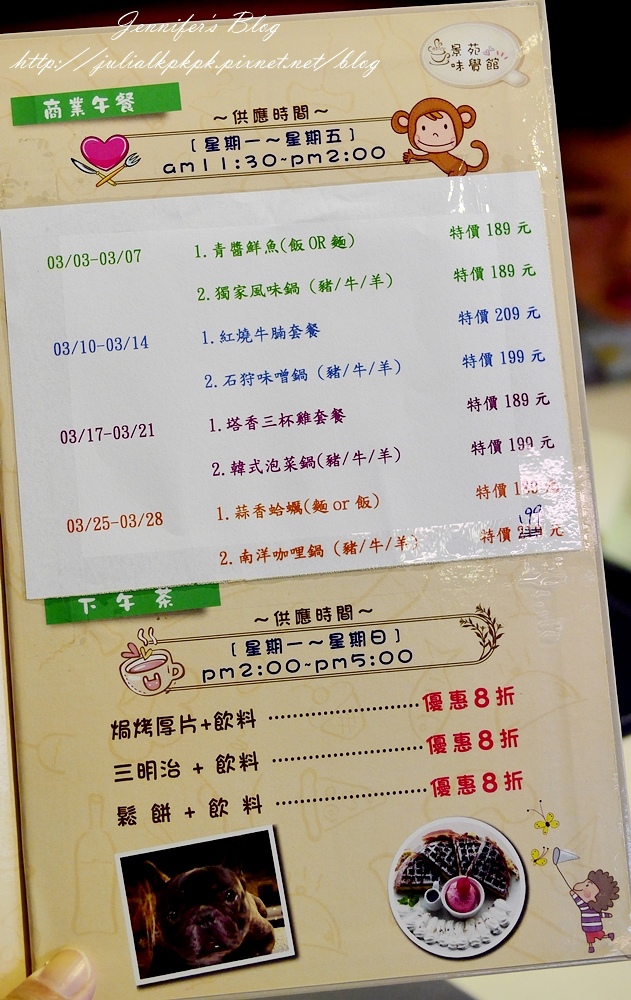 Jennifer's Blog
http://julialkpkpk.pixnet.net/blog
景苑
味覺館
商業午餐
～供應時間～
[星期一～星期五]
am11:30~pm2:00
03/03-03/07 1.青醬鮮魚(飯OR麵) 特價 189 元
2.獨家風味鍋 (豬/牛/羊) 特價 189 元
03/10-03/14 1.紅燒牛腩套餐 特價 209 元
2.石狩味噌鍋 (豬/牛/羊) 特價 199 元
03/17-03/21 1.塔香三杯雞套餐 特價 189 元
2.韓式泡菜鍋(豬/牛/羊) 特價 199 元
03/25-03/28 1.蒜香蛤蠣(麵 or 飯) 特價 元
199
2.南洋咖哩鍋 (豬/牛/羊) 特價 元
下午茶
～供應時間～
[星期一～星期日]
pm2:00~pm5:00
焗烤厚片+飲料 ‥‥‥‥‥‥‥‥優惠8折
三明治 + 飲料 ‥‥‥‥‥‥‥‥優惠8折
鬆 餅 + 飲 料 ‥‥‥‥‥‥‥‥優惠8折